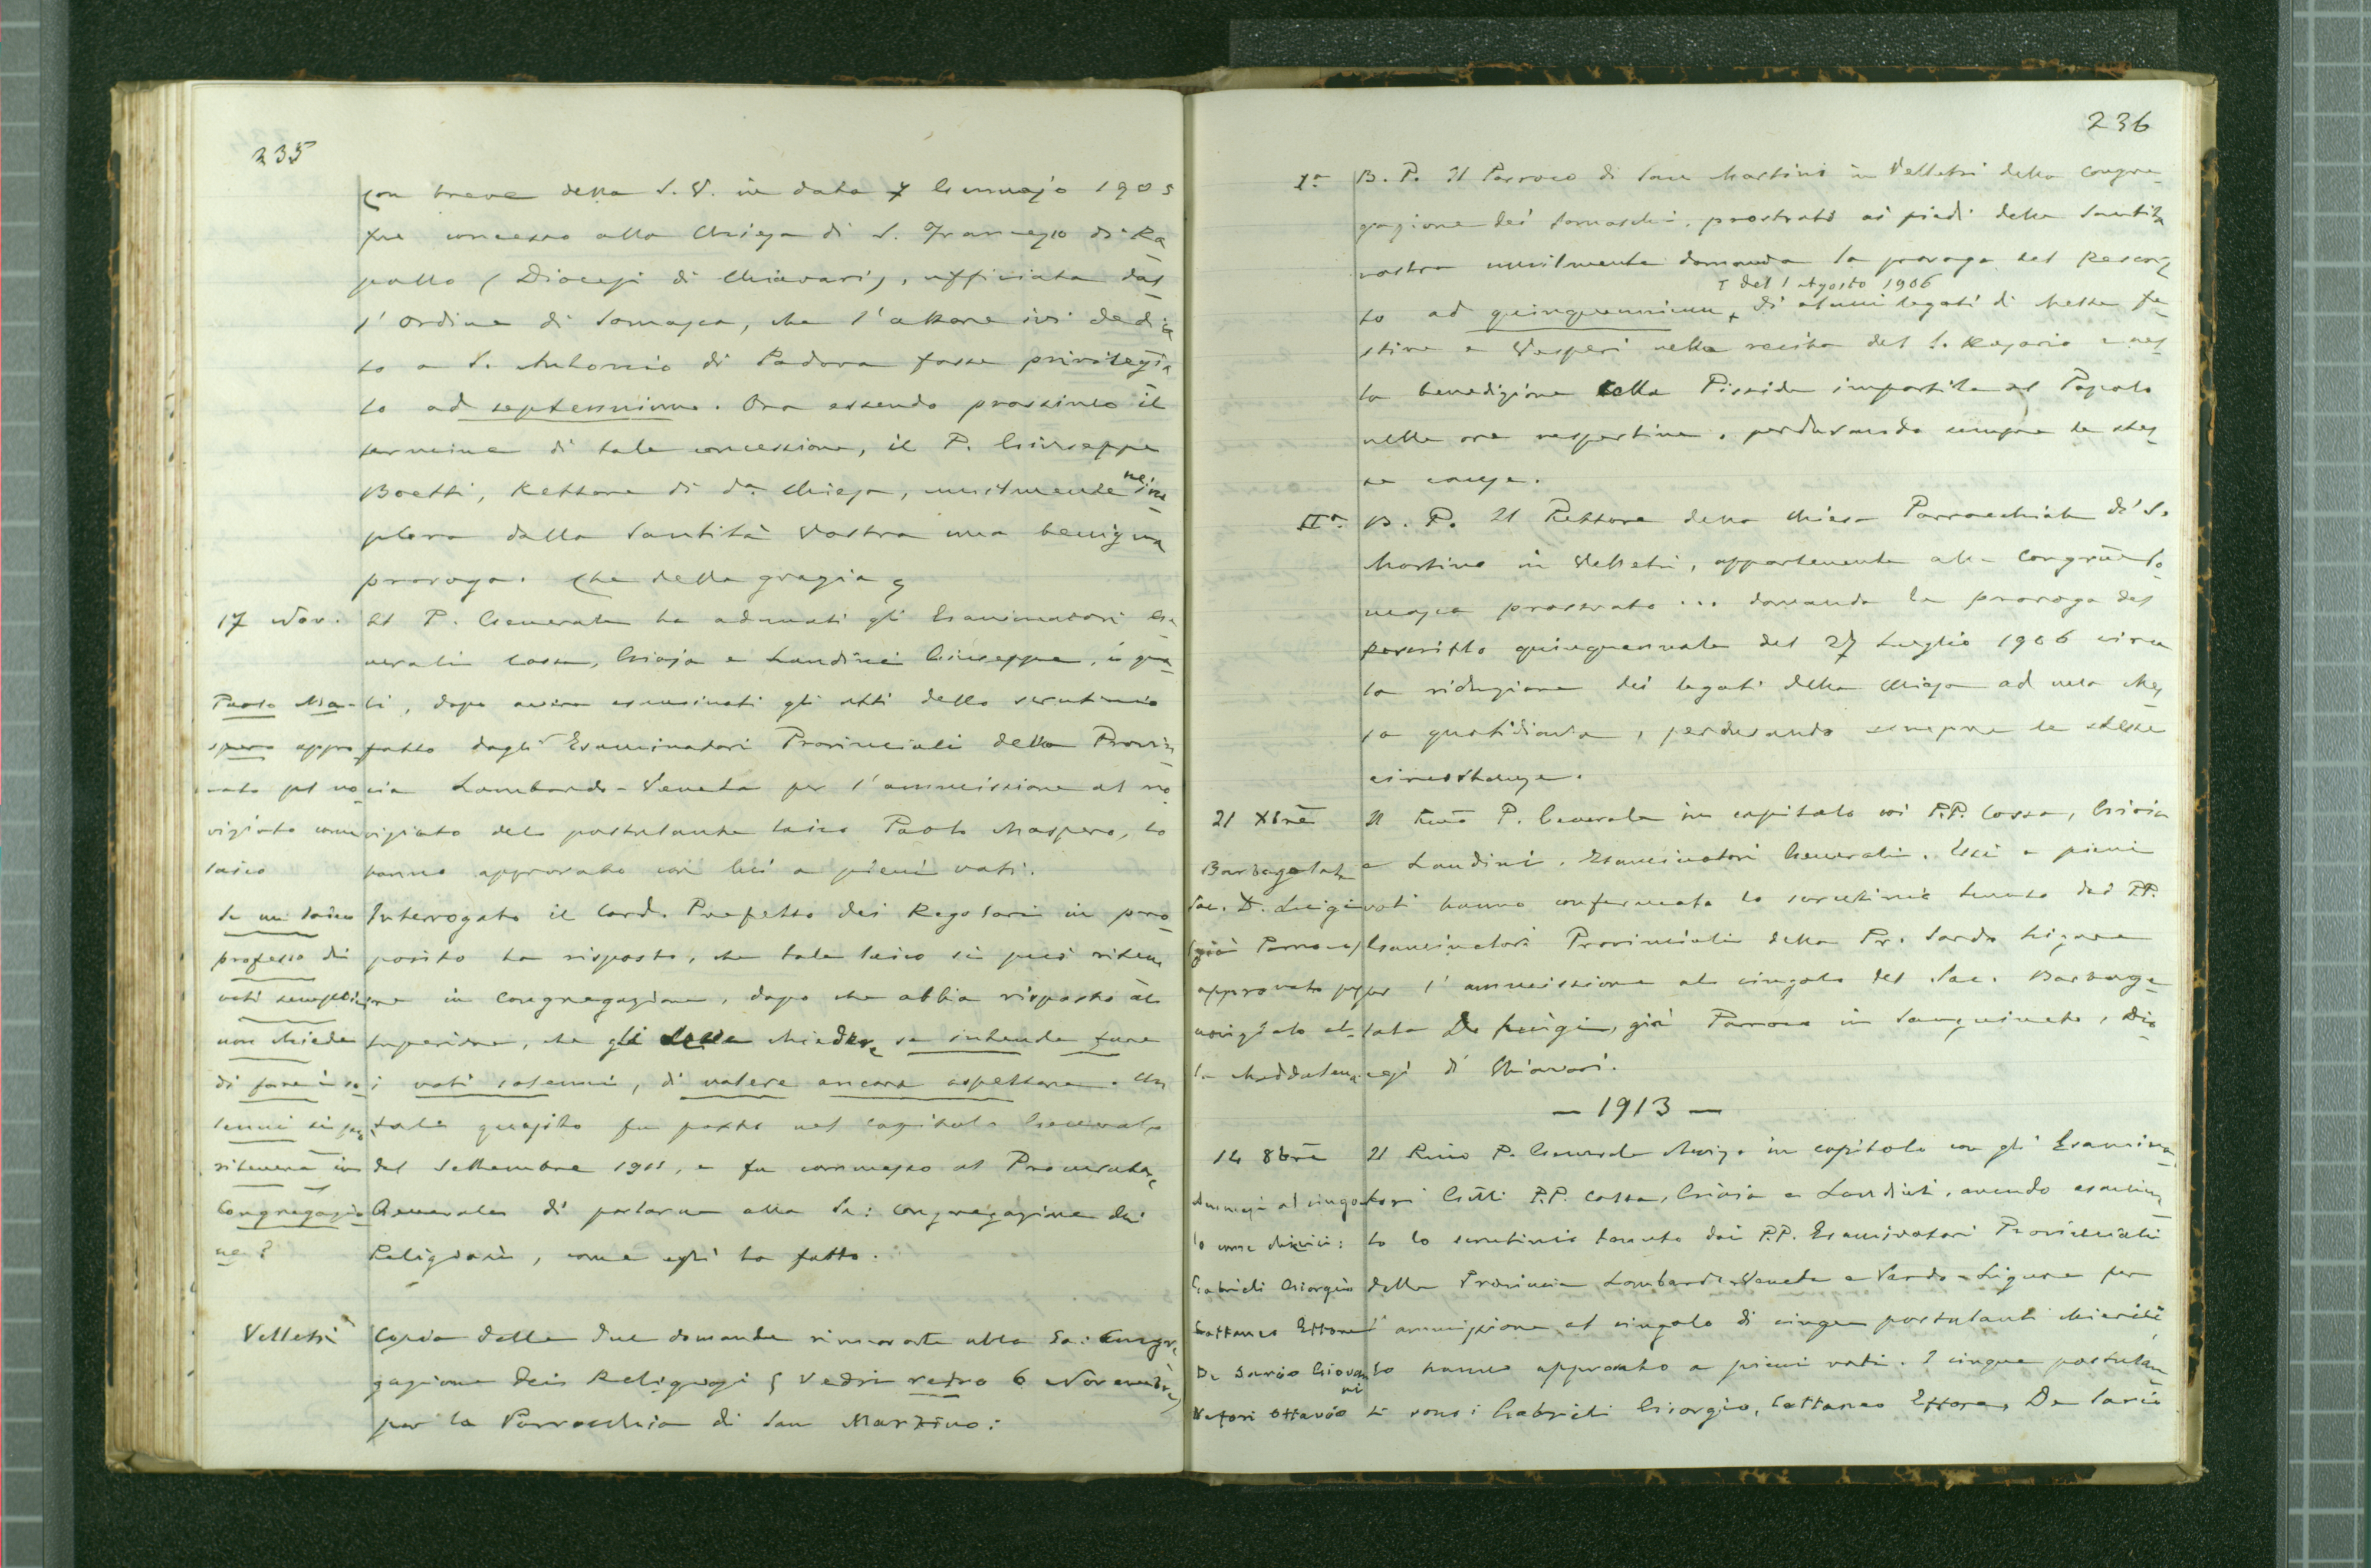 235
con breve della S. V. in data 7 Gennajo 1905
fu concesso alla Chiesa di S. Francesco di Ra
pallo (Diocesi di Chiavari), ufficiata dal
l'Ordine di Somasca, che l'altare ivi dedica
to a S. Antonio di Padova fosse privilegia
to ad septennium. Ora essendo prossimo il
termine di tale concessione, il P. Giuseppe
Boetti, Rettore di da. Chiesa, umilmente ne im
plora dalla Santità Vostra una benigna
proroga. Che della grazia
17 Nov. Il P. Generale ha adunati gli Esaminatori Ge
nerali Cossa, Gioja e Landini Giuseppe, i qua
Paolo Ma- li, dopo avere esaminati gli atti dello scrutinio
spero appro fatto dagli Esaminatori Provinciali della Provin
vato pel no cia Lombardo-Veneta per l'ammissione al no
viziato come viziato del postulante laico Paolo Maspero, lo
laico hanno approvato con lui a pieni voti.
Se un laico Interrogato il Card. Prefetto dei Regolari in pro
professo di posito ha risposto, che tale laico si può ritene
voti semplici re in Congregazione, dopo che abbia risposto al
non chiede Superiore, che gli chiedere se intende fare
di fare i so i voti solenni, di volere ancora aspettare. Un
lenni si può tale quesito fu posto nel Capitolo Generale
ritenere in del Settembre 1911, e fu commesso al Procuratore
Congregazio Generale di parlarne alla Sa: Congregazione dei
ne? Religiosi, come egli ha fatto.
Velletri Copia delle due domande rinnovate alla Sa: Congre
gazione dei Religiosi (Vedi retro 6 Novembre)
per la Parrocchia di San Martino:
236
Ia B. P. Il Parroco di San Martino in Velletri della Congre
gazione dei Somaschi, prostrato ai piedi della Santità
vostra umilmente domanda la proroga del Rescrit
del 1 Agosto 1906
to ad quinquennium di alcuni legati di Messe fe
stive e Vesperi nella recita del S. Rosario e nel
la benedizione colla Pisside impartita al Popolo
nelle ore vespertine, perdurando sempre le stes
se cause.
IIa B. P. Il Rettore della Chiesa Parrocchiale di S.
Martino in Velletri, appartenente alla Congrne So
masca prostrato ... domanda la proroga del
Rescritto quinquennale del 27 Luglio 1906 circa
la riduzione dei legati della Chiesa ad una Mes
sa quotidiana, perdurando sempre le stesse
circostanze.
21 Xbre Il Rmo P. Generale in capitolo coi P.P. Cossa, Gioia
Barbagelata e Landini, Esaminatori Generali. Essi a pieni
Sac. D. Luigi voti hanno confermato lo scrutinio tenuto dai PP.
(già Parroco) Esaminatori Provinciali della Pr. Sardo Ligure
approvato pel per l'ammissione al cingolo del Sac. Barbage
noviziato al lata D. Luigi, già Parroco in Sanguineto, Dio
la Maddalena cesi di Chiavari.
— 1913 —
14 8bre Il Rmo P. Generale in capitolo con gli Esamina
Ammessi al cingo tori Gnli P.P. Cossa, Gioia e Landini, avendo esamina
lo come chierici: to lo scrutinio tenuto dai P.P. Esaminatori Provinciali
Gabrieli Giorgio della Provincia Lombardo-Veneta e Sardo-Ligure per
Cattaneo Ettore l'ammissione al cingolo di cinque postulanti chierici,
De Sario Giovan lo hanno approvato a pieni voti. I cinque postulan
ni
Ottavio ti sono: Gabrieli Giorgio, Cattaneo Ettore, De Sario